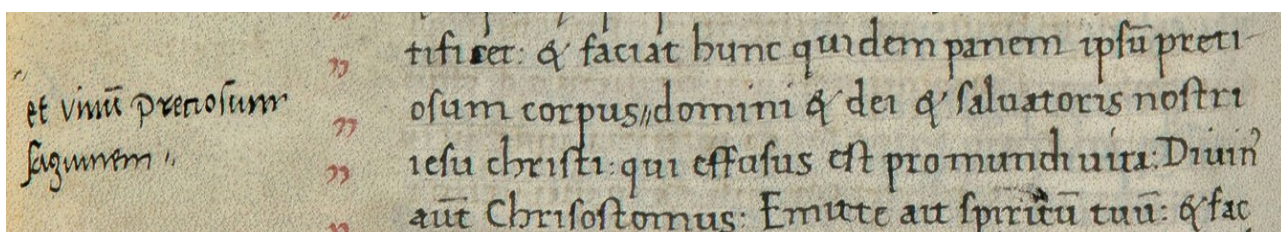 et vinū preciosum
saguinem
tificet: & faciat hunc quidem panem ipsū preti-
osum corpus,,domini & dei & saluatoris nostri
iesu christi: qui effusus est pro mundi uita: Diuin⁹
aūt Chrisostomus: Emitte ait spiritū tuū: & fac